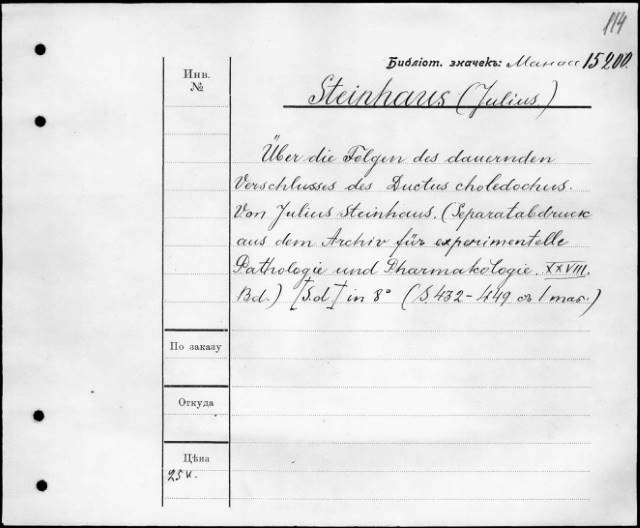 114
Библіот. значекъ: Манас 15200.
Инв. №
Steinhaus (Julius)
Über die Folgen des dauernden
Verschlusses des Ductus choledochus.
Von Julius Steinhaus. (Separatabdruck
aus dem Archiv für experimentelle
Pathologie und Pharmakologie. XXVIII.
Bd.) [S.d] in 8° (S. 432-449 съ 1 таб.)
По заказу
Откуда
Цѣна
25 к.